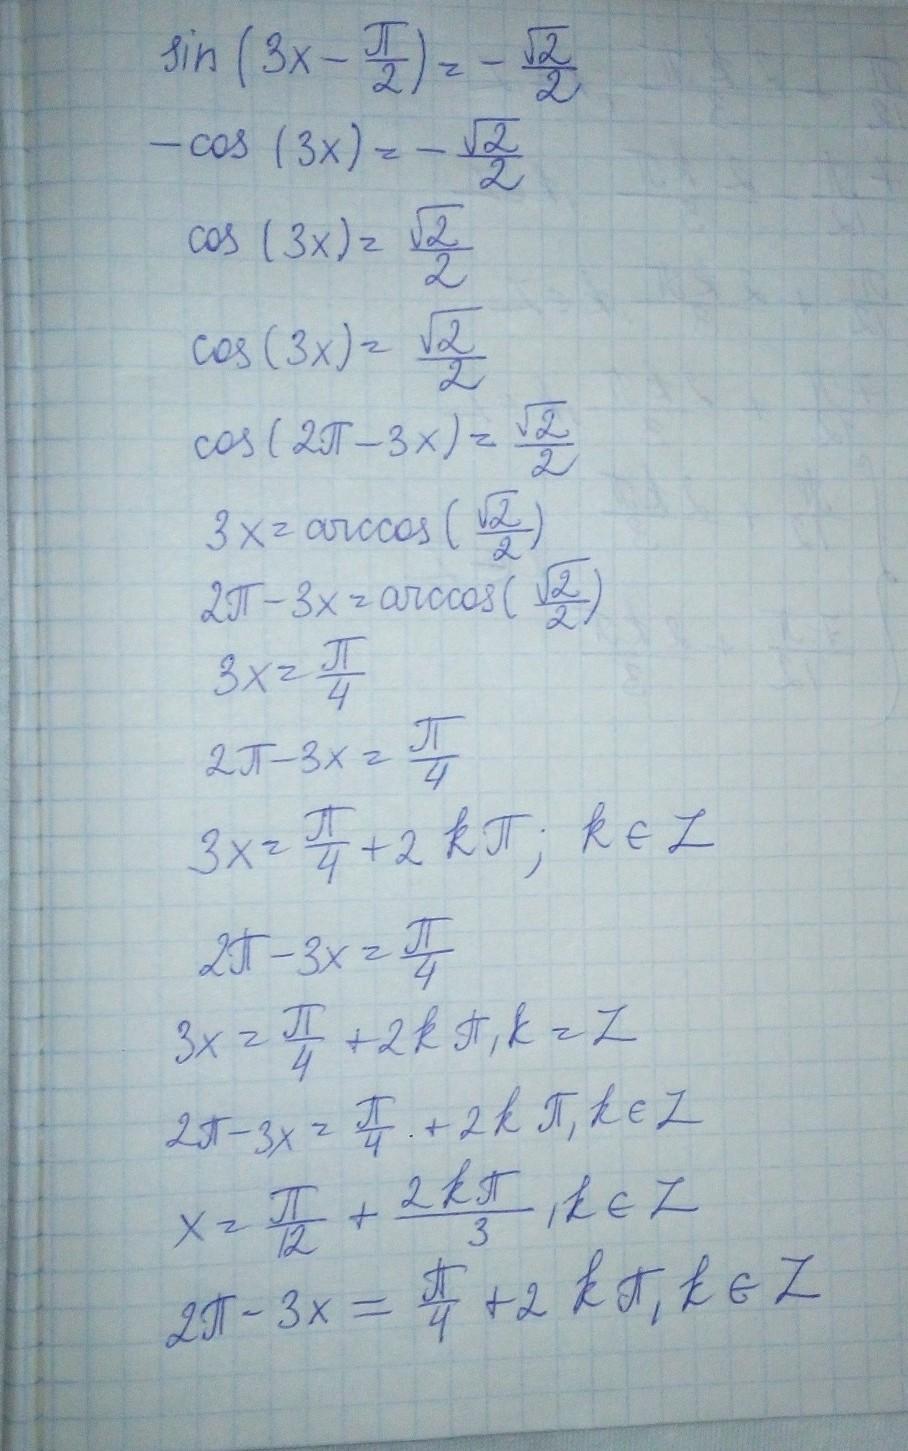 sin(3x - π/2) = - √2/2
-cos (3x) = - √2/2
cos (3x) = √2/2
cos(3x) = √2/2
cos(2π - 3x) = √2/2
3x = arccos(√2/2)
2π - 3x = arccos(√2/2)
3x = π/4
2π - 3x = π/4
3x = π/4 + 2kπ; k ∈ Z
2π - 3x = π/4
3x = π/4 + 2kπ, k = Z
2π - 3x = π/4 + 2kπ, k ∈ Z
x = π/12 + 2kπ/3, k ∈ Z
2π - 3x = π/4 + 2kπ, k ∈ Z